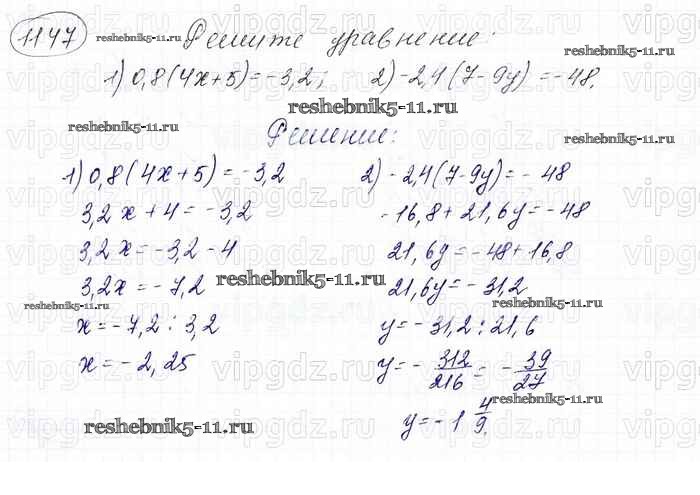 1147 reshebnik5-11.ru Решите уравнение:
reshebnik5-11.ru
1) 0,8(4x+5)=-3,2; 2) -2,4(7-9y)=-48.
reshebnik5-11.ru
reshebnik5-11.ru
Решение:
reshebnik5-11.ru
1) 0,8(4x+5)=-3,2 2) -2,4(7-9y)=-48
3,2x+4=-3,2 -16,8+21,6y=-48
3,2x=-3,2-4 21,6y=-48+16,8
3,2x=-7,2 reshebnik5-11.ru 21,6y=-31,2
reshebnik5-11.ru reshebnik5-11.ru
x=-7,2:3,2 y=-31,2:21,6
x=-2,25 y=-312/216=-39/27
reshebnik5-11.ru
reshebnik5-11.ru y=-1 4/9.
vipgdz.ru vipgdz.ru vipgdz.ru vipgdz.ru